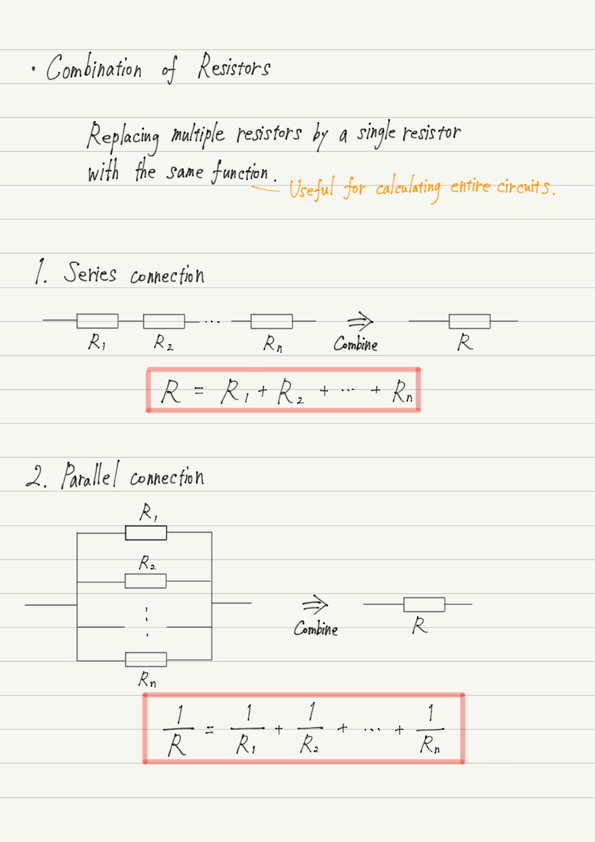 · Combination of Resistors
Replacing multiple resistors by a single resistor
with the same function.
Useful for calculating entire circuits.
1. Series connection
R1 R2 ... Rn ⇒ Combine R
R = R1 + R2 + ... + Rn
2. Parallel connection
R1
R2
⋮
Rn
⇒ Combine R
1/R = 1/R1 + 1/R2 + ... + 1/Rn